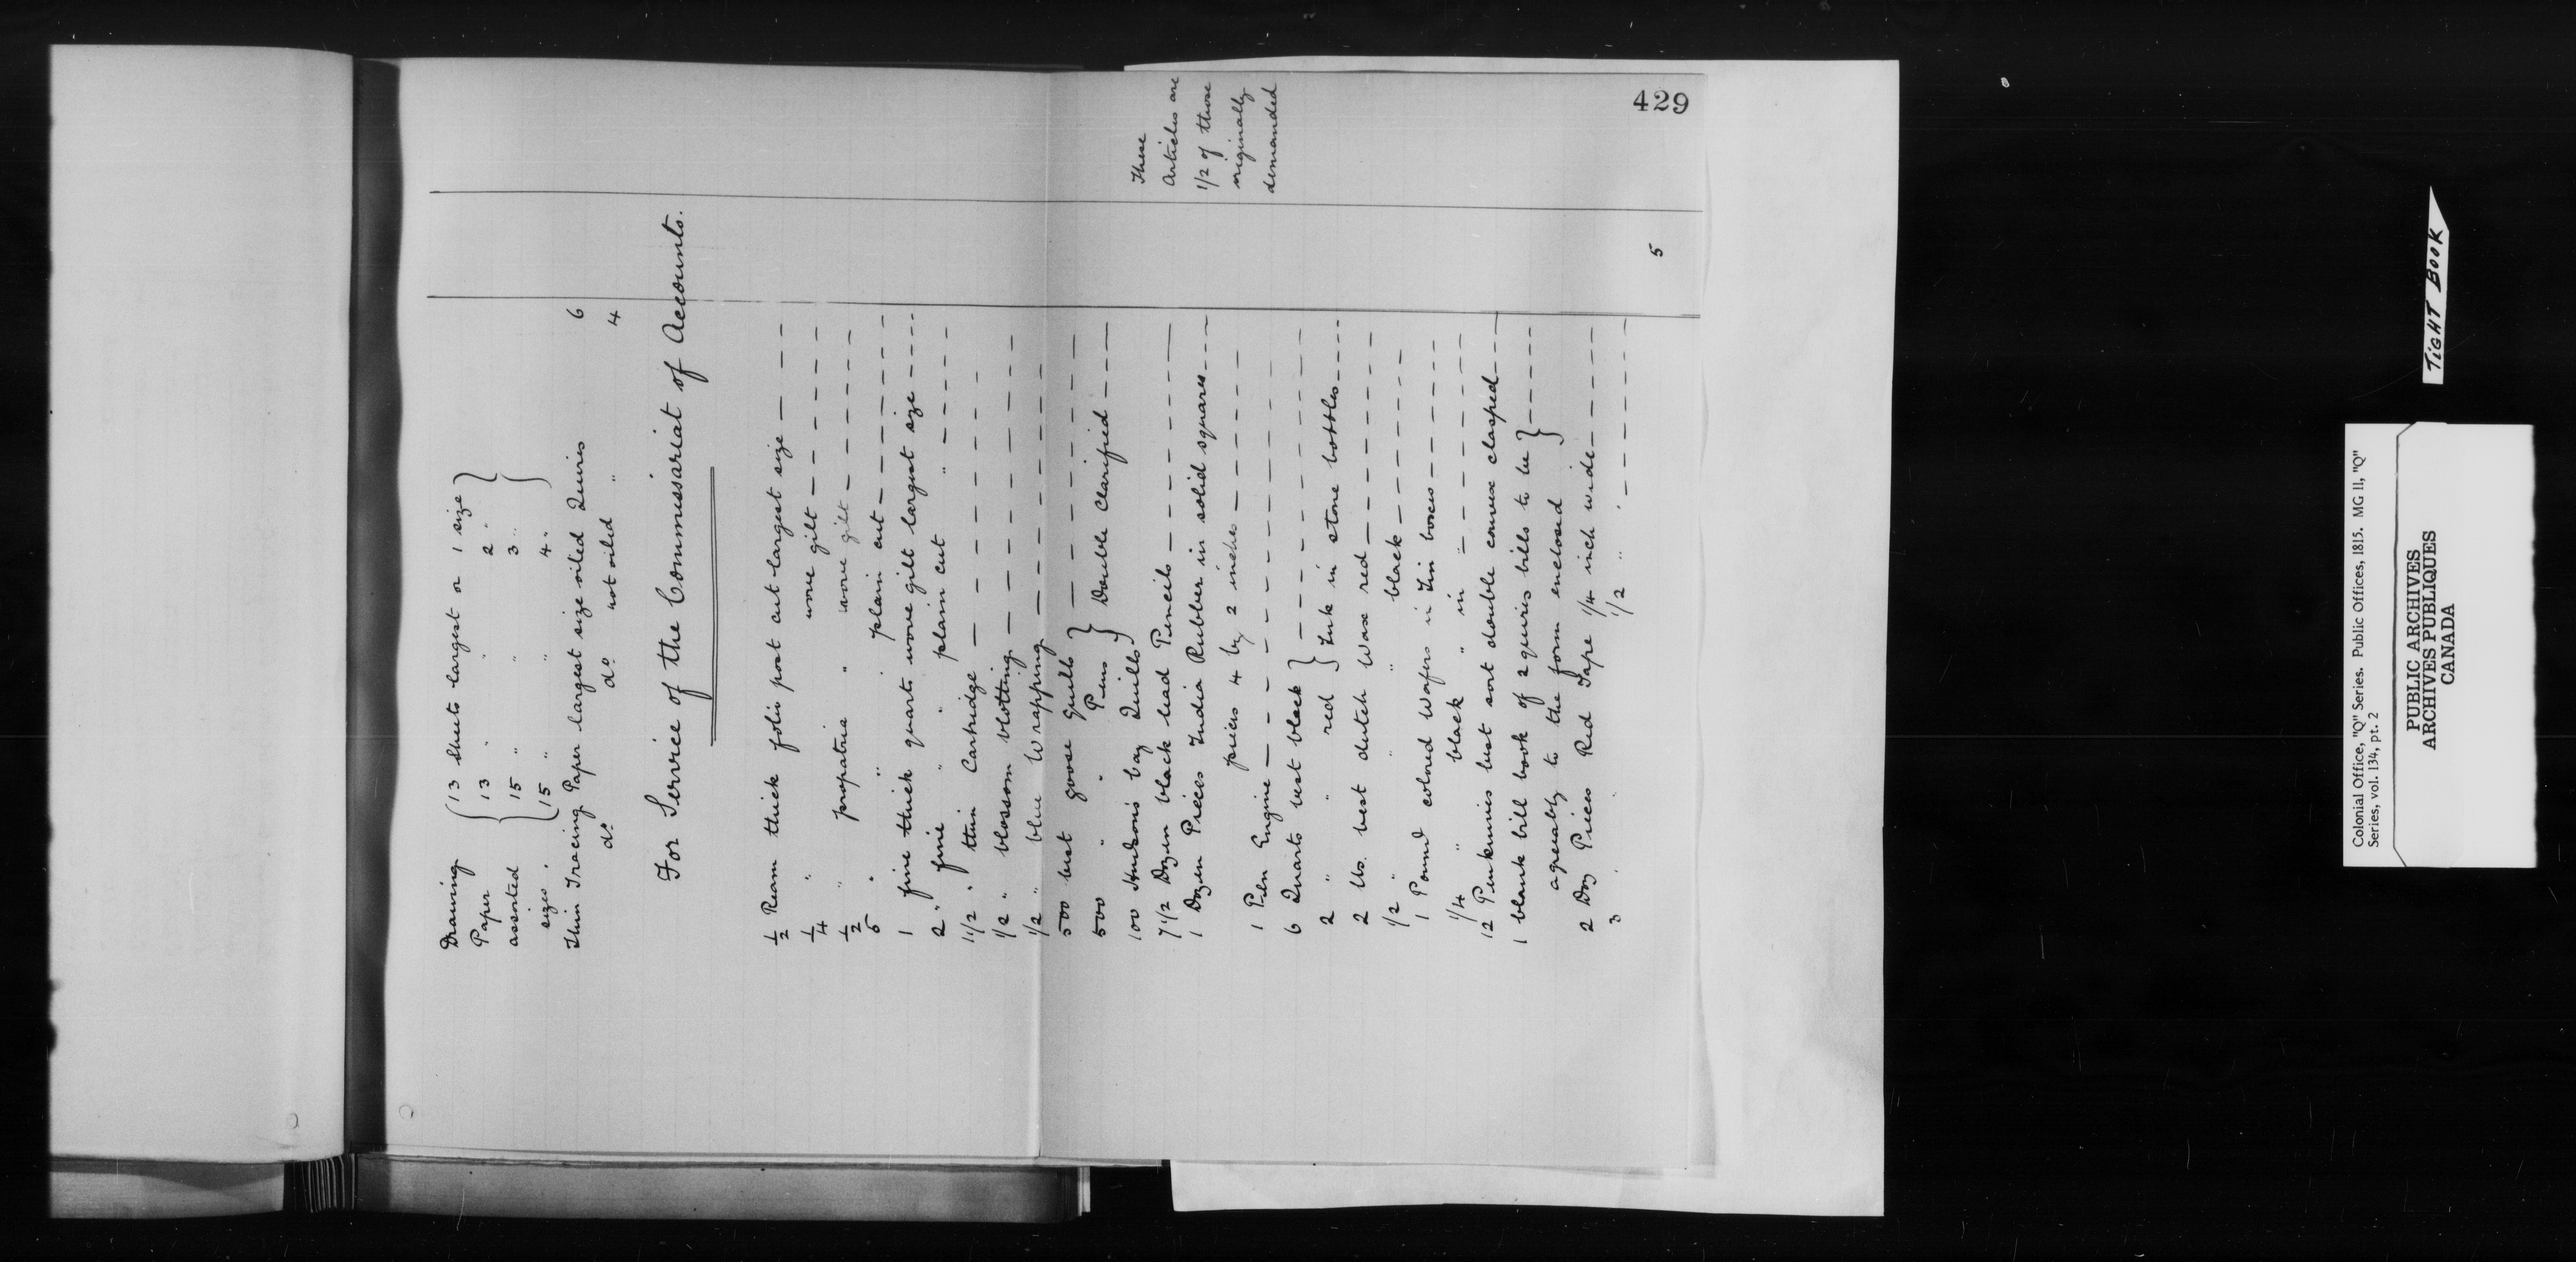 429
Drawing { 13 sheets largest or 1 size }
Paper 13 " " 2 "
assorted 15 " " 3 "
sizes . 15 " " 4 "
Thin Tracing Paper largest size oiled Quires 6
do do not oiled " 4
For Service of the Commissariat of Accounts.
1/2 Ream thick folio post cut largest size — — —
1/4 " wove gilt — — — — —
1/2 " propatria " wove gilt — — — — —
5 " " " plain cut — — — — —
1 fine thick quarto wove gilt largest size - - - -
2 " fine " " plain cut " - - - - -
1 1/2 " thin Cartridge — — — — — —
1/2 " blossom blotting — — — — — —
1/2 " blue Wrapping — — — — — —
500 best goose Quills } — — — — — —
500 " " Pens } Double Clarified — — —
100 Hudson's bay Quills }
7 1/2 Dozen black lead Pencils — — — — —
1 Dozen Pieces India Rubber in solid squares - - - -
pieces 4 by 2 inches — — — — —
1 Pen Engine — — — — — — —
6 Quarts best black } — — — — — —
2 " " red } Ink in stone bottles - - - -
2 lbs. best dutch Wax red — — — — —
1/2 " " " black — — — — —
1 Pound colored Wafers in Tin boxes — — — — —
1/4 " black " in " - - - - - -
12 Penknives best sort double convex clasped - - - -
1 blank bill book of 2 quires bills to be } - - - -
agreeably to the form enclosed }
2 Doz Pieces Red Tape 1/4 inch wide - - - - -
3 " " 1/2 " " - - - - -
5
These
Articles are
1/2 of those
originally
demanded
TIGHT BOOK
Colonial Office, "Q" Series. Public Offices, 1815. MG 11, "Q"
Series, vol. 134, pt. 2
PUBLIC ARCHIVES
ARCHIVES PUBLIQUES
CANADA